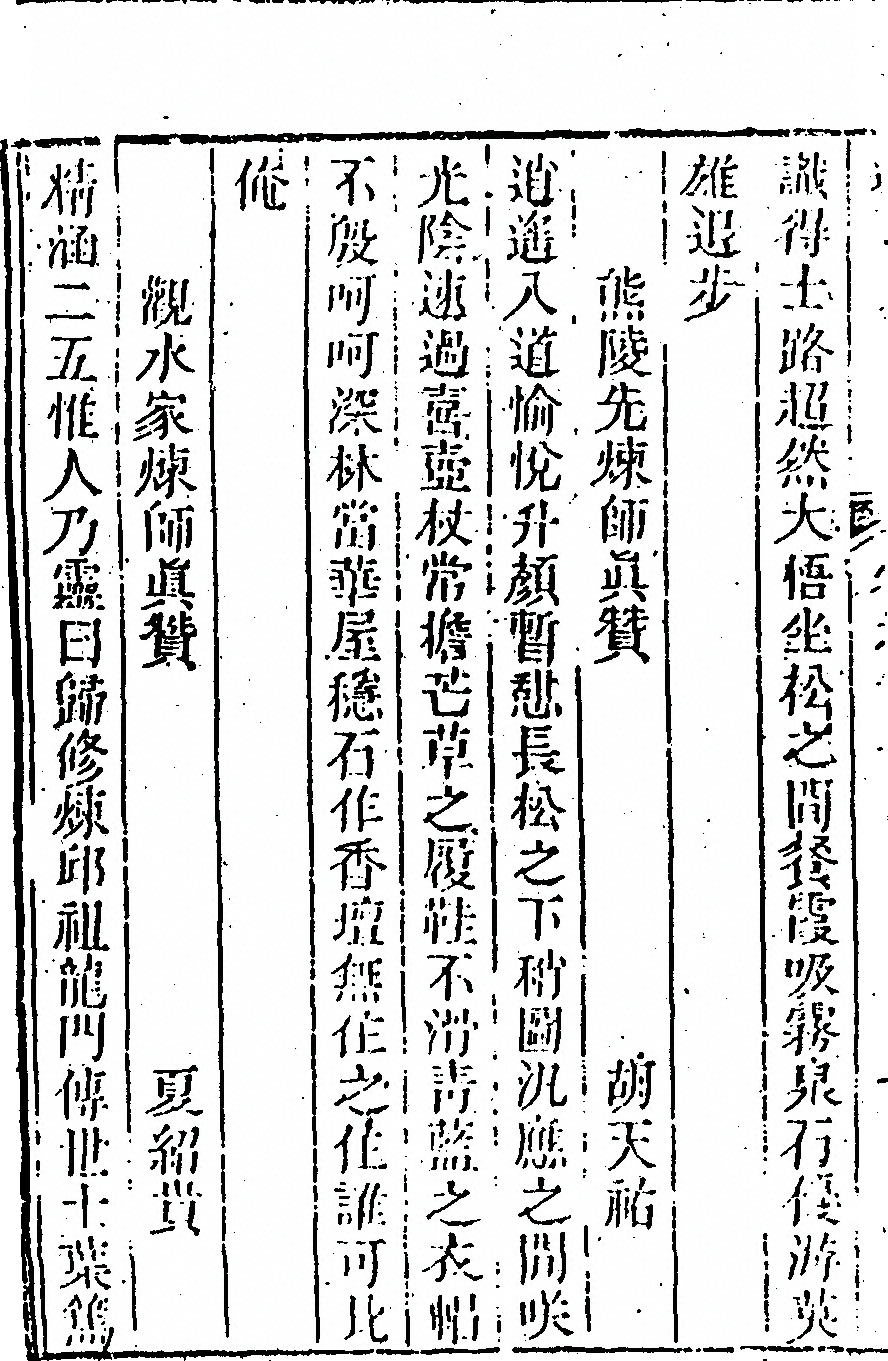 識得士路超然大悟坐松之間餐霞吸霧泉石優游英
雄退步
熊陵先煉師眞贊 胡天祐
逍遙入道愉悅升顏暫憩長松之下稍圖汎應之間咲
光陰速過喜壺杖常擔芒草之履鞋不滑靑藍之衣帽
不殷呵呵深林當華屋穩石作香壇無住之住誰可比
俺
觀水家煉師眞贊 夏紹貴
精涵二五惟人乃靈曰歸修煉邱祖龍門傳世十葉篤